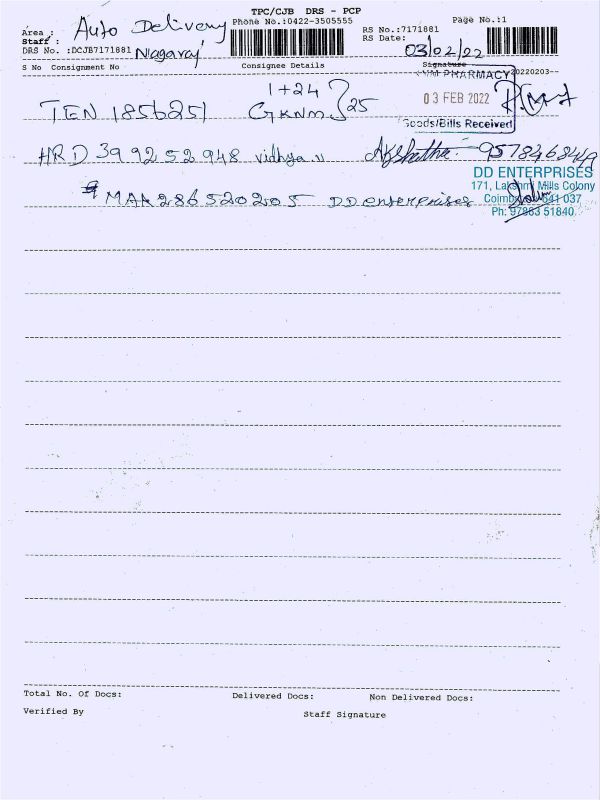 TPC/CJB DRS - PCP
Area : Auto Delivery Phone No.:0422-3505555 RS No.:7171881 Page No.:1
Staff : RS Date: 03/02/22
DRS No. :DCJB7171881 Nagaraj
S No Consignment No Consignee Details Signature
PHARMACY 20220203
1+24
03 FEB 2022
TEN 185625 GKNM } 25
Goods/Bills Received
HRD 399252948 vidhya.v Akshatha
DD ENTERPRISES
171, Lakshmi Mills Colony
MAA 286520205 DD enterprises Coimbatore-641 037
Ph: 97883 51840
Total No. Of Docs: Delivered Docs: Non Delivered Docs:
Verified By Staff Signature